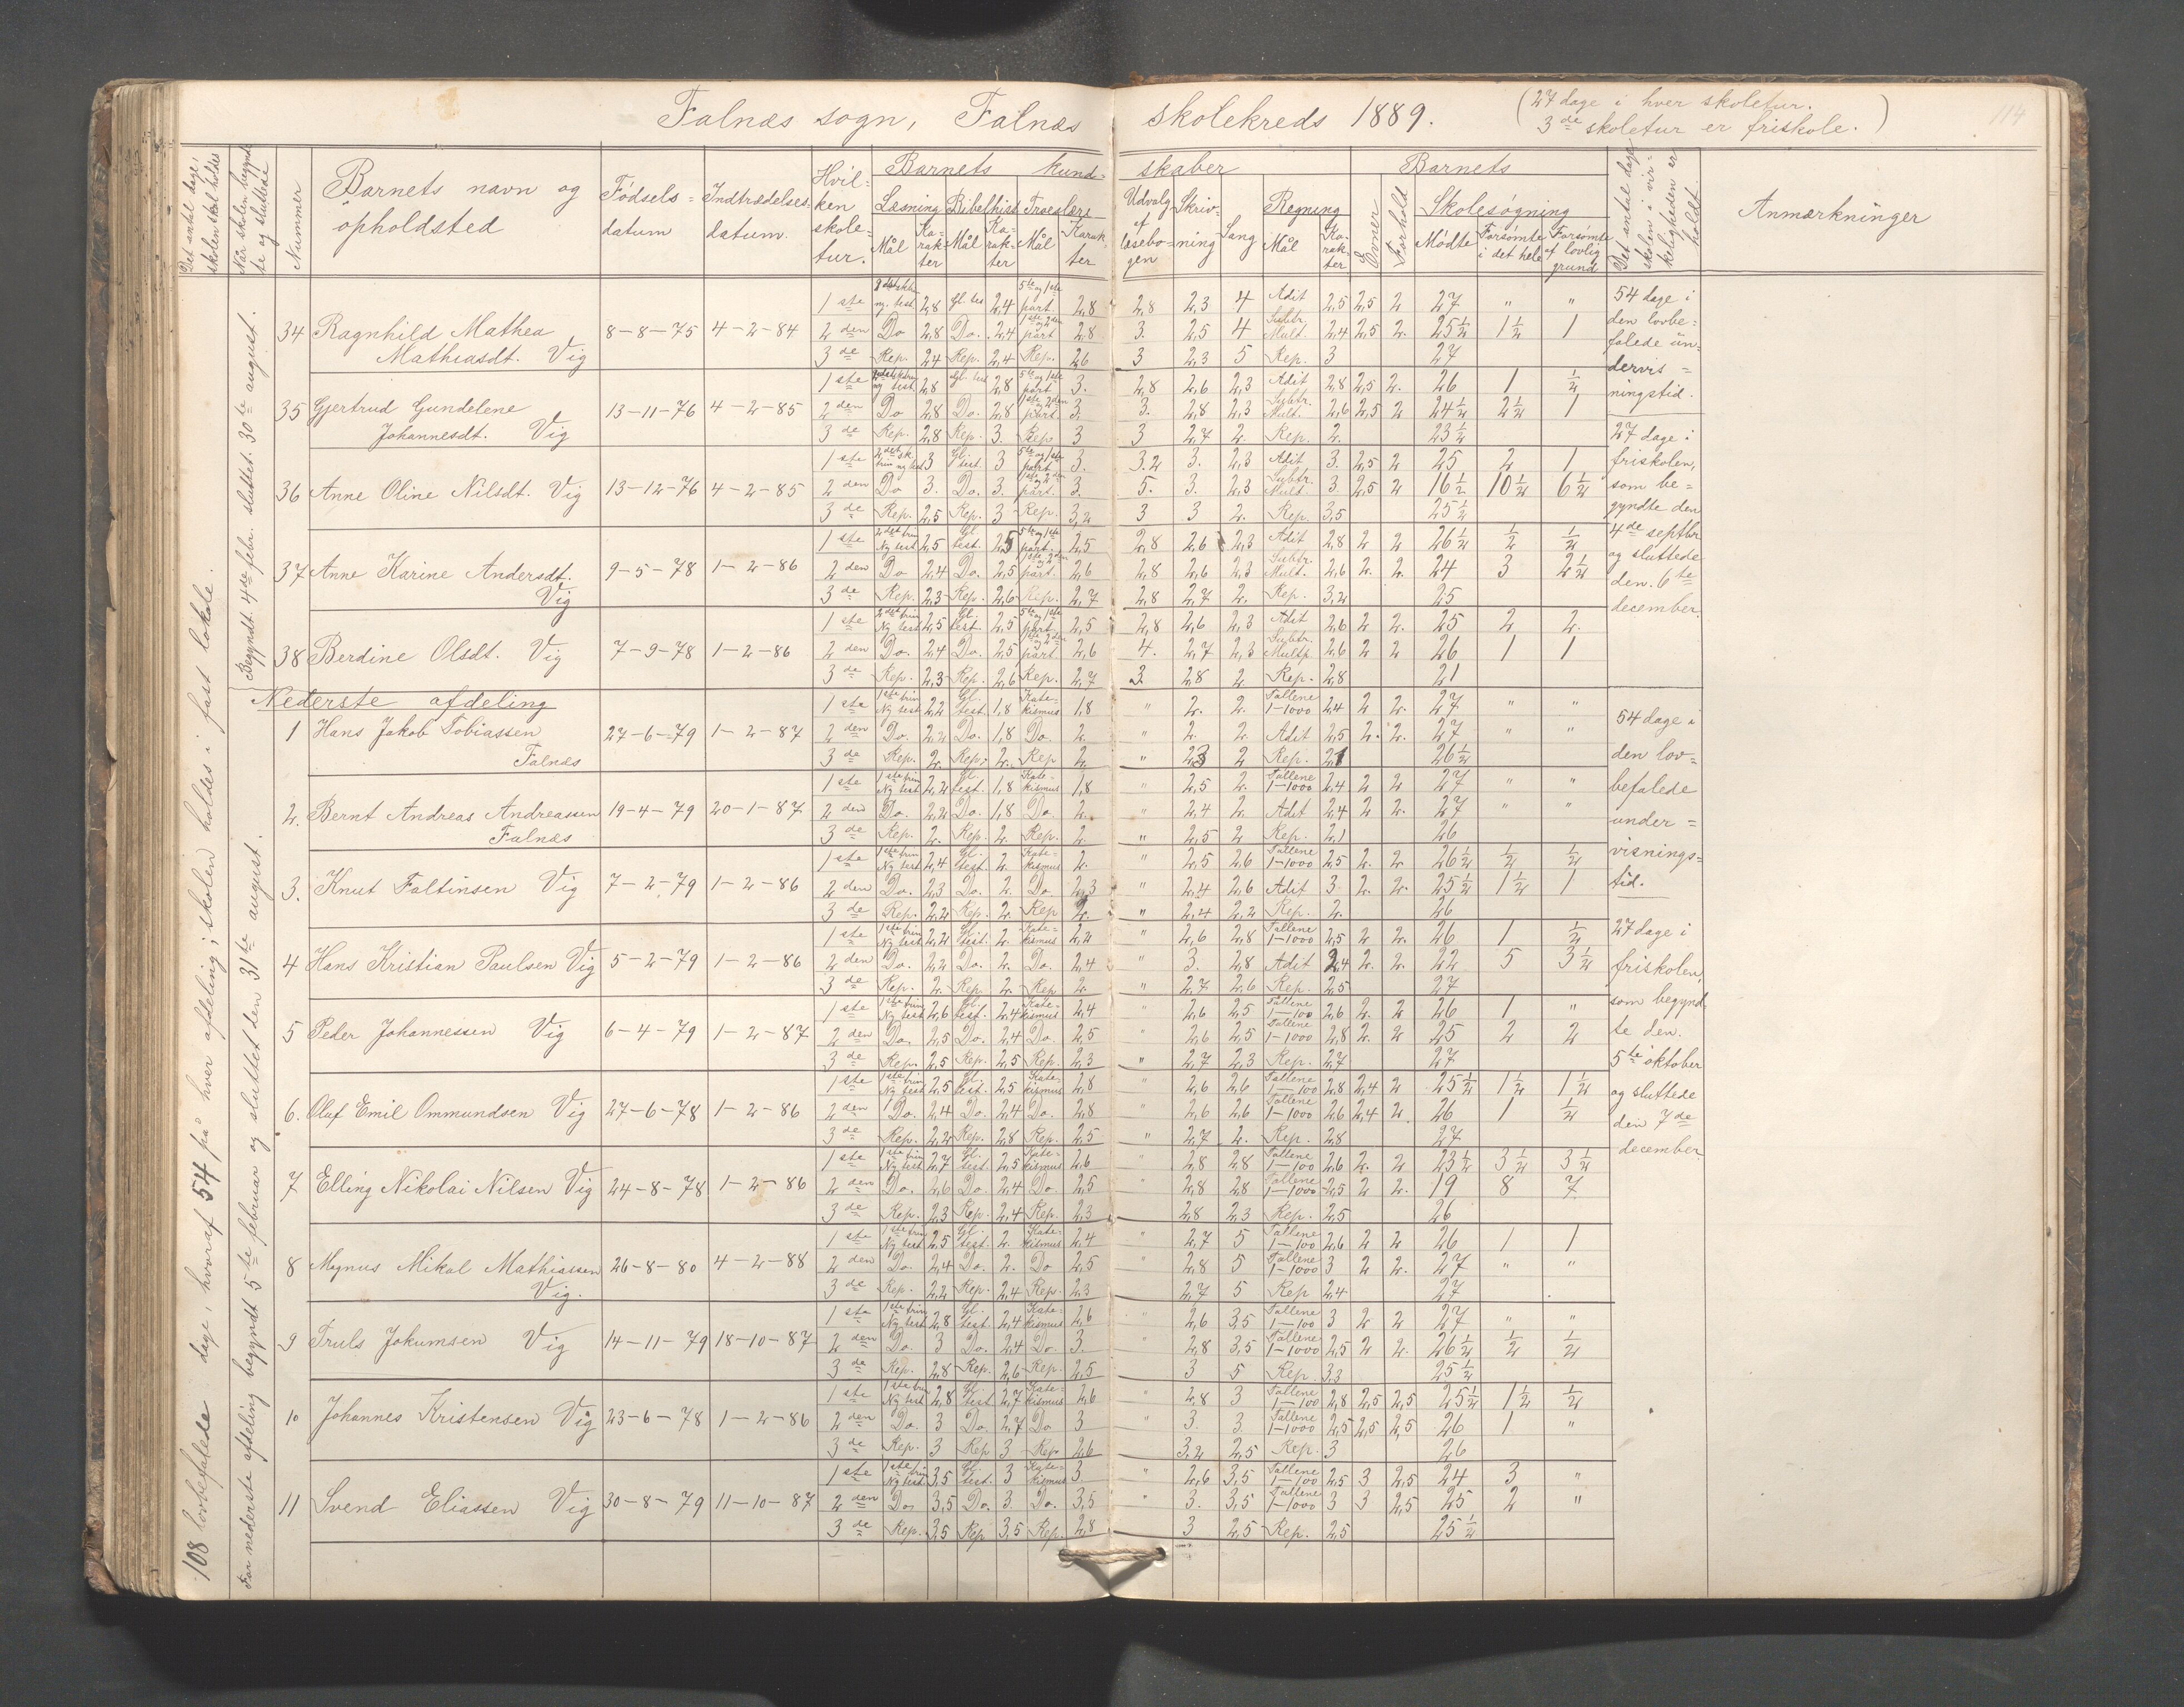 Falnæs sogn, Falnæs skolekreds 1889. (27 dage i hver skoletur.
3de skoletur er friskole.)
114
Det antal dage, skolen skal holdes
Når skolen begyndte og sluttede
Nummer
Barnets navn og opholdsted
Fødselsdatum
Indtrædelsesdatum.
Hvilken skoletur.
Barnets kundskaber
Læsning Mål Karakter
Bibelhist. Mål Karakter
Troeslære Mål Karakter
Udvalg af læsebogen
Skrivning
Sang
Regning Mål Karakter
Barnets
Evner
Forhold
Skolesøgning
Mødte
Forsømte i det hele
Forsømte af lovlig grund
Det antal dage skolen i virkeligheden er holdt.
Anmærkninger
108 lovbefalede dage, hvoraf 54 på hver afdeling; skolen holdes i fast lokale.
Begyndt 4de febr. sluttet 30te august.
For nederste afdeling begyndt 5te februar og sluttet den 31te august.
34 Ragnhild Mathea Mathiasdt. Vig 8-8-75 4-2-84
1ste 2,8 Gl. tes 2,4 5te og 1ste part. 2,8 2,8 2,3 4 Adit 2,5 2,5 2 27 " "
2den Do 2,8 Do. 2,4 1ste og 2den part 2,8 3. 2,5 4 Subtr. Mult. 2,4 2,5 2. 25½ 1½ 1
3de Rep. 2,4 Rep. 2,4 Rep. 2,6 3 2,3 5 Rep. 3 27
35 Gjertrud Gundelene Johannesdt. Vig 13-11-76 4-2-85
1ste 2,8 Gl. test 2,8 5te og 1ste part 3. 2,8 2,6 2,3 Adit 2,8 2,5 2. 26 1 ½
2den Do 2,8 Do. 2,8 1ste 2den part. 3. 3. 2,8 2,3 Subtr. Mult. 2,6 2,5 2 24½ 2½ 1
3de Rep. 2,8 Rep. 3. Rep 3 3 2,7 2. Rep. 2. 23½
36 Anne Oline Nilsdt. Vig 13-12-76 4-2-85
1ste 3 Gl. test. 3 5te og 1ste part 3. 3.2 3. 2,3 Adit 3. 2,5 2 25 2 1
2den Do 3. Do. 3. 1ste og 2den part. 3. 5. 3. 2,3 Subtr. Mult 3. 2,5 2 16½ 10½ 6½
3de Rep. 2,5 Rep. 3 Rep. 3,2 3 3 2. Rep. 3,5 25½
37 Anne Karine Andersdt. Vig 9-5-78 1-2-86
1ste 2det trin Ny test 2,5 Gl. test. 2,5 5te og 1ste part. 2,5 2,8 2,6 2,3 Adit 2,8 2 2 26½ ½ ½
2den Do 2,4 Do. 2,5 1ste 2den part. 2,6 2,8 2,6 2,3 Subtr. Mult. 2,6 2. 2. 24 3 2½
3de Rep. 2,3 Rep. 2,6 Rep. 2,7 2,8 2,7 2. Rep. 3,2 25
38 Berdine Olsdt. Vig 7-9-78 1-2-86
1ste 2det trin Ny test 2,5 Gl. test. 2,5 5te og 1ste part 2,5 2,8 2,6 2,3 Adit 2,6 2 2. 25 2 2.
2den Do. 2,4 Do. 2,5 1ste og 2den part 2,6 4. 2,7 2,3 Subtr. Multp 2,6 2 2 26 1 1
3de Rep. 2,3 Rep. 2,6 Rep. 2,7 3. 2,8 2 Rep. 2,8 21
54 dage i
den lovbe=
falede un=
dervis=
ningstid.
27 dage i
friskolen,
som be=
gyndte den
4de septbr
og sluttede
den. 6te
december
Nederste afdeling
1 Hans Jakob Tobiassen Falnæs 27-6-79 1-2-87
1ste 1ste trin Ny test 2,2 Gl. test. 1,8 Kate=kismus 1,8 " 2. 2. Tallene 1-1000 2,4 2 2. 27 " "
2den Do. 2,2 Do. 1,8 Do. 2. " 2. 2. Adit 2,5 2. 2. 27 " "
3de Rep. 2. Rep. 2. Rep 2. " 2,3 2 Rep. 2,1 26½
2. Bernt Andreas Andreassen Falnæs 19-4-79 20-1-87
1ste 1ste trin Ny test 2,2 Gl. test. 1,8 Kate=kismus 1,8 " 2,5 2. Tallene 1-1000 2,4 2 2 27 " "
2den Do. 2,2 Do. 1,8 Do. 2. " 2,4 2. Adit 2,4 2 2. 27 " "
3de Rep. 2. Rep. 2. Rep. 2 " 2,5 2 Rep. 2,1 26
3. Knut Faltinsen Vig 7-2-79 1-2-86
1ste 1ste trin Ny test 2,4 Gl. test. 2. Kate=kismus 2. " 2,5 2,6 Tallene 1-1000 2,5 2. 2. 26½ ½ ½
2den Do. 2,3 Do. 2. Do. 2,3 " 2,4 2,6 Adit 3 2. 2. 25½ 1½ 1
3de Rep. 2,2 Rep. 2. Rep 2. " 2,4 2,2 Rep. 2. 26
4 Hans Kristian Paulsen Vig 5-2-79 1-2-86
1ste 1ste trin Ny test 2,2 Gl. test. 2. Kate=kismus 2,2 " 2,6 2,8 Tallene 1-1000 2,5 2 2. 26 1 ½
2den Do. 2,2 Do. 2. Do. 2,4 " 3. 2,8 Adit 2,4 2. 2. 22 5 3½
3de Rep. 2. Rep. 2. Rep 2. " 2,7 2,6 Rep. 2,5 27
5 Peder Johannessen Vig 6-4-79 1-2-87
1ste 1ste trin Ny test 2,6 Gl. test. 2,4 Kate=kismus 2,4 " 2,6 2,5 Tallene 1-100 2,6 2. 2 26 1 "
2den Do. 2,5 Do. 2,4 Do. 2,5 " 2,6 2,5 Tallene 1-1000 2,8 2. 2 25 2 2
3de Rep. 2,5 Rep. 2,5 Rep. 2,3 " 2,7 2,3 Rep. 2,7 27
6. Oluf Emil Ommundsen Vig 27-6-78 1-2-86
1ste 1ste trin Ny test 2,5 Gl. test. 2,5 Kate=kismus 2,8 " 2,6 2,6 Tallene 1-100 2,8 2,4 2 25½ 1½ 1½
2den Do. 2,4 Do. 2,4 Do. 2,8 " 2,6 2,6 Tallene 1-1000 2,6 2,4 2. 26 1 ½
3de Rep. 2,2 Rep. 2,8 Rep. 2,5 " 2,7 2. Rep. 2,8 27
7 Elling Nikolai Nilsen Vig 24-8-78 1-2-86
1ste 1ste trin Ny test 2,7 Gl. test. 2,5 Kate=kismus 2,6 " 2,8 2,8 Tallene 1-100 2,6 2. 2 23½ 3½ 3½
2den Do. 2,6 Do. 2,4 Do. 2,5 " 2,8 2,8 Tallene 1-1000 2,5 2 2. 19 8 7
3de Rep. 2,3 Rep. 2,4 Rep. 2,3 2,8 2,3 Rep. 2,5 26
8 Magnus Mikal Mathiassen Vig. 26-8-80 4-2-88
1ste 1ste trin Ny test 2,5 Gl. test. 2. Kate=kismus 2,4 " 2,7 5 Tallene 1-100 2,6 2 2 26 1 1
2den Do. 2,4 Do. 2. Do 2,5 " 2,8 5 Tallene 1-1000 3 2 2. 27 " "
3de Rep. 2,2 Rep. 2,4 Rep. 2,3 2,7 5 Rep 2,4 27
9 Truls Jokumsen Vig 14-11-79 18-10-87
1ste 1ste trin Ny test 2,8 Gl. test. 2,4 Kate=kismus 2,6 " 2,6 3,5 Tallene 1-100 3 2 2 27 " "
2den Do. 3 Do. 2,4 Do. 3. " 2,8 3,5 Tallene 1-1000 2,5 2 2. 26½ ½ ½
3de Rep. 2,8 Rep. 2,6 Rep. 2,5 3 5 Rep. 3,3 25½
10 Johannes Kristensen Vig 23-6-78 1-2-86
1ste 1ste trin Ny test 2,8 Gl. test 2,7 Kate=kismus 2,6 " 2,8 3 Tallene 1-100 2,8 2,5 2,5 25½ 1½ ½
2den Do. 3 Do. 2,7 Do 3 " 3. 3. Tallene 1-1000 2,5 2,5 2,5 26 1 "
3de Rep. 3 Rep 3 Rep 2,6 3,2 2,5 Rep. 3 26
11 Svend Eliassen Vig 30-8-79 11-10-87
1ste 1ste trin Ny test 3,5 Gl. test. 3 Kate=kismus 3 " 2,6 3,5 Tallene 1-100 2,5 3 2,5 24 3 "
2den Do. 3,5 Do. 3. Do. 3,5 " 3. 3,5 Tallene 1-1000 3 3 2,5 25 2 "
3de Rep. 3,5 Rep 3,5 Rep. 2,8 3 2,5 Rep. 2,5 25½
54 dage i
den lov=
befalede
under=
visnings=
tid.
27 dage i
friskolen,
som begynd
te den.
5te oktober
og sluttede
den 7de
december